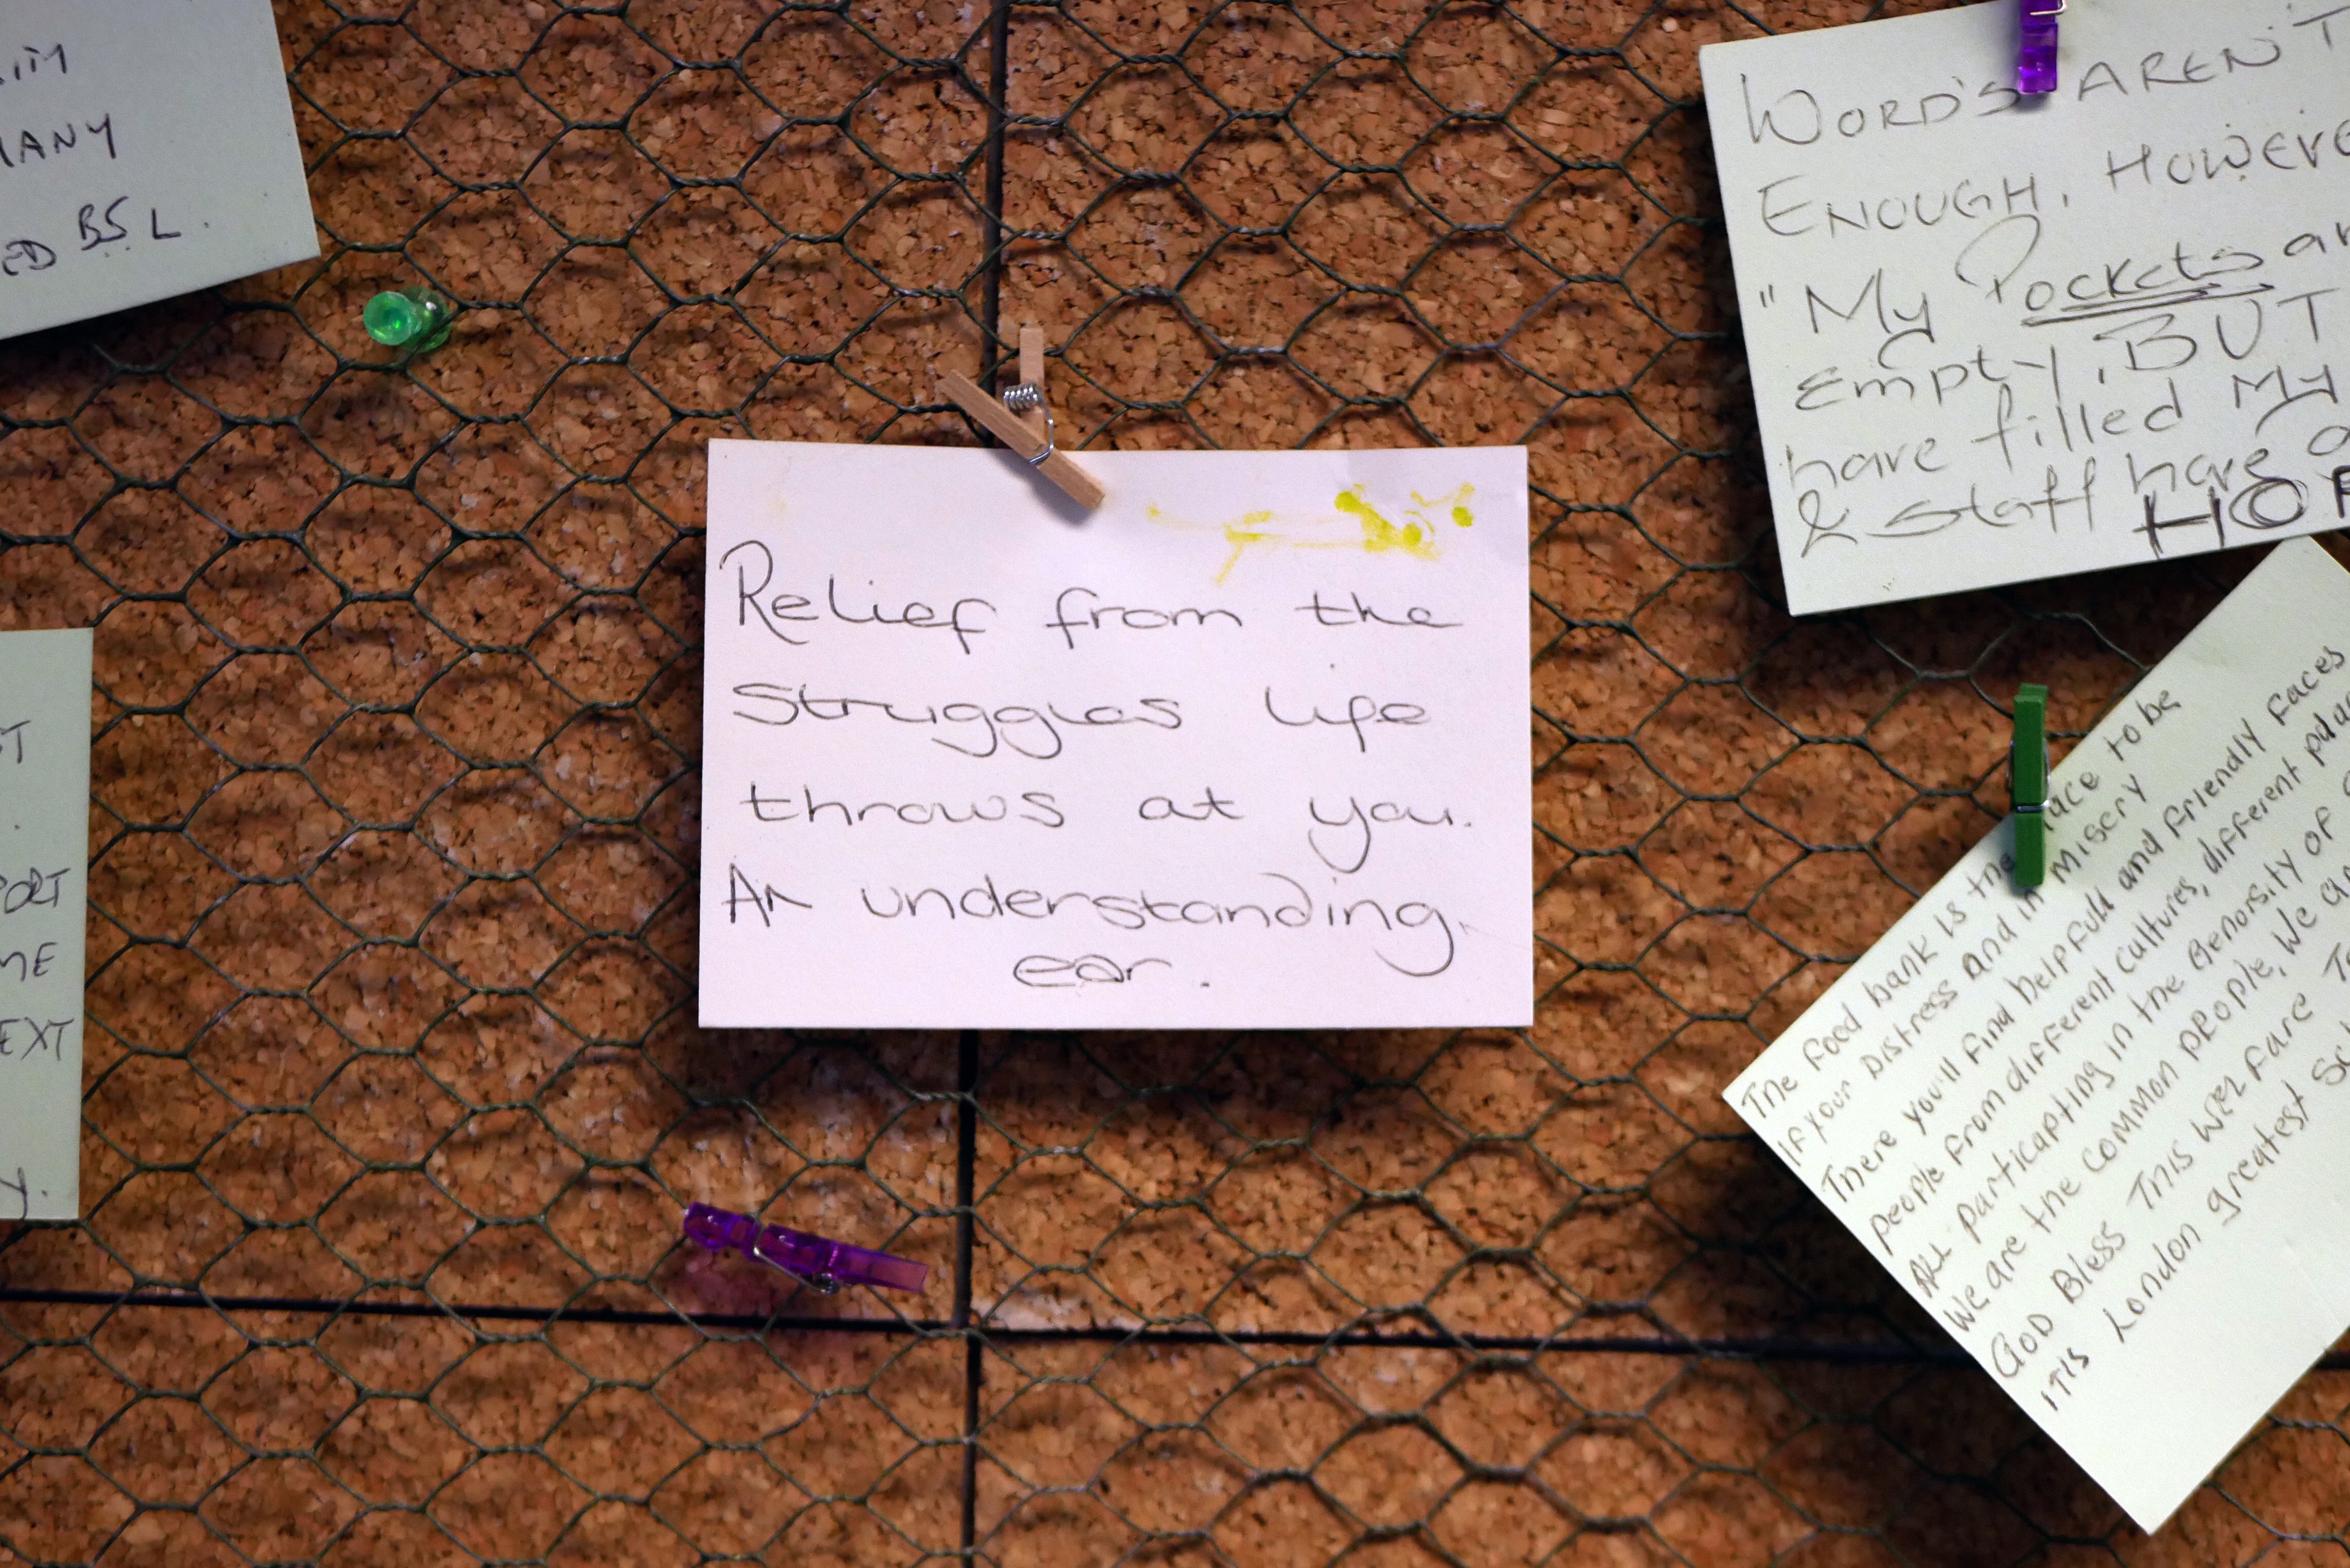 MANY
BSL.
Relief from the
struggles life
throws at you.
An understanding
ear.
WORD'S AREN'T
ENOUGH, HOWEVE
"My Pockets
Empty, BUT
have filled My
& Staff have
The food bank is the place to be
If your Distress and in misery
There you'll find helpfull and friendly faces
people from different cultures, different
ALL participating in the Genorsity of
We are the common people, We
GOD Bless This Welfare
ITIS London greatest